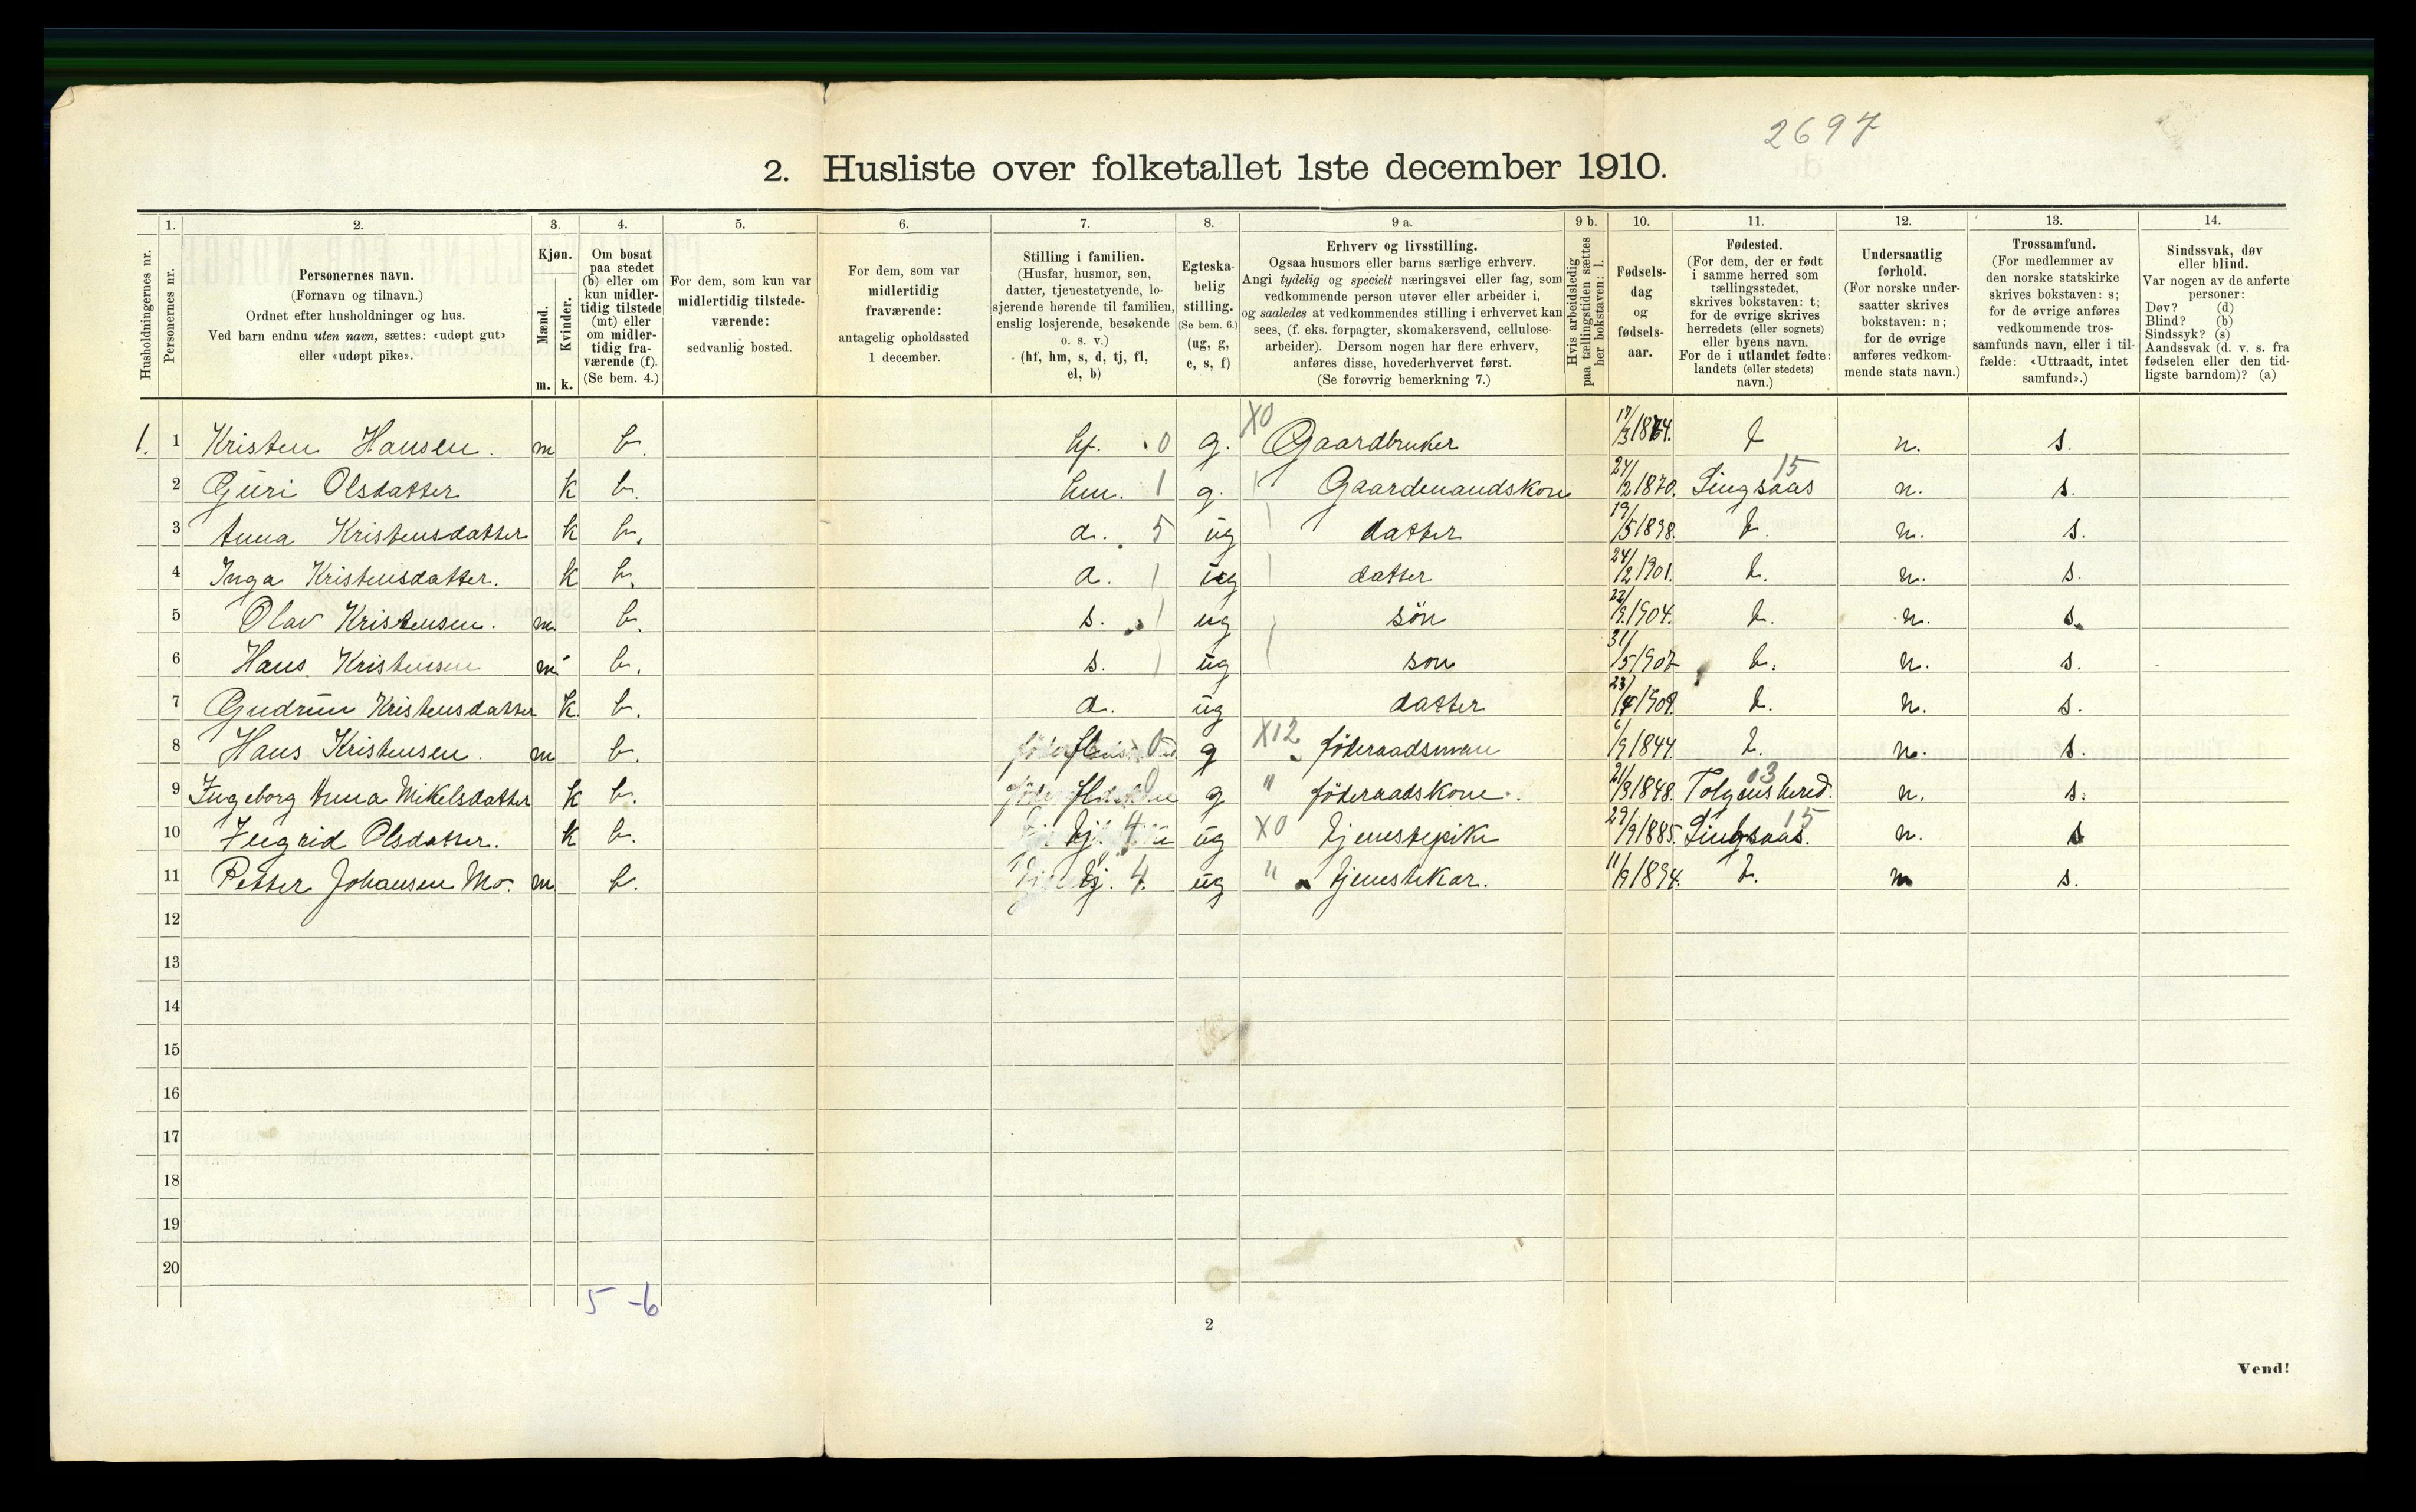 2697
2. Husliste over folketallet 1ste december 1910.
Husholdningernes nr.
1. Personernes nr.
2. Personernes navn.
(Fornavn og tilnavn.)
Ordnet efter husholdninger og hus.
Ved barn endnu uten navn, sættes: «udøpt gut»
eller «udøpt pike».
3. Kjøn.
Mænd. m.
Kvinder. k.
4. Om bosat
paa stedet
(b) eller om
kun midler-
tidig tilstede
(mt) eller
om midler-
tidig fra-
værende (f).
(Se bem. 4.)
5. For dem, som kun var
midlertidig tilstede-
værende:
sedvanlig bosted.
6. For dem, som var
midlertidig
fraværende:
antagelig opholdssted
1 december.
7. Stilling i familien.
(Husfar, husmor, søn,
datter, tjenestetyende, lo-
sjerende hørende til familien,
enslig losjerende, besøkende
o. s. v.)
(hf, hm, s, d, tj, fl,
el, b)
8. Egteska-
belig
stilling.
(Se bem. 6.)
(ug, g,
e, s, f)
9 a. Erhverv og livsstilling.
Ogsaa husmors eller barns særlige erhverv.
Angi tydelig og specielt næringsvei eller fag, som
vedkommende person utøver eller arbeider i,
og saaledes at vedkommendes stilling i erhvervet kan
sees, (f. eks. forpagter, skomakersvend, cellulose-
arbeider). Dersom nogen har flere erhverv,
anføres disse, hovederhvervet først.
(Se forøvrig bemerkning 7.)
9 b. Hvis arbeidsledig
paa tællingstiden sættes
her bokstaven: l.
10. Fødsels-
dag
og
fødsels-
aar.
11. Fødested.
(For dem, der er født
i samme herred som
tællingsstedet,
skrives bokstaven: t;
for de øvrige skrives
herredets (eller sognets)
eller byens navn.
For de i utlandet fødte:
landets (eller stedets)
navn.)
12. Undersaatlig
forhold.
(For norske under-
saatter skrives
bokstaven: n;
for de øvrige
anføres vedkom-
mende stats navn.)
13. Trossamfund.
(For medlemmer av
den norske statskirke
skrives bokstaven: s;
for de øvrige anføres
vedkommende tros-
samfunds navn, eller i til-
fælde: «Uttraadt, intet
samfund».)
14. Sindssvak, døv
eller blind.
Var nogen av de anførte
personer:
Døv? (d)
Blind? (b)
Sindssyk? (s)
Aandssvak (d. v. s. fra
fødselen eller den tid-
ligste barndom)? (a)
1. 1 Kristen Hansen. m b. hf. 0 g. X0 Gaardbruker 17/3 1874. t n. s.
2 Guri Olsdatter k b. hm. 1 g. Gaardmandskone 24/2 1870. Singsaas 15 n. s.
3 Anna Kristensdatter k b. d. 5 ug datter 19/5 1898. t. n. s.
4 Inga Kristensdatter. k b. d. 1 ug datter 24/2 1901. t. n. s.
5 Olav Kristensen. m b. s. 1 ug søn 22/9 1904. t. n. s.
6 Hans Kristensen m b. s. 1 ug son 31/5 1907 t. n. s.
7 Gudrun Kristensdatter k. b. d. ug datter 23/4 1909. t. n. s.
8 Hans Kristensen. m b. fl 0 g X12 föderaadsman 6/9 1844. t. n. s.
9 Ingeborg Anna Mikelsdatter k b. fl 0 g " föderaadskone. 21/3 1848. Tolgens hered. 03 n. s.
10 Ingrid Olsdatter. k b. tj. 4 ug X0 tjenestepike 29/9 1885. Singsaas. 15 n. s
11 Petter Johansen Mo. m b. tj. 4. ug " tjenestekar. 11/9 1894. t. n s.
12
13
14
15
16
17
18
19
20
5 - 6
2
Vend!